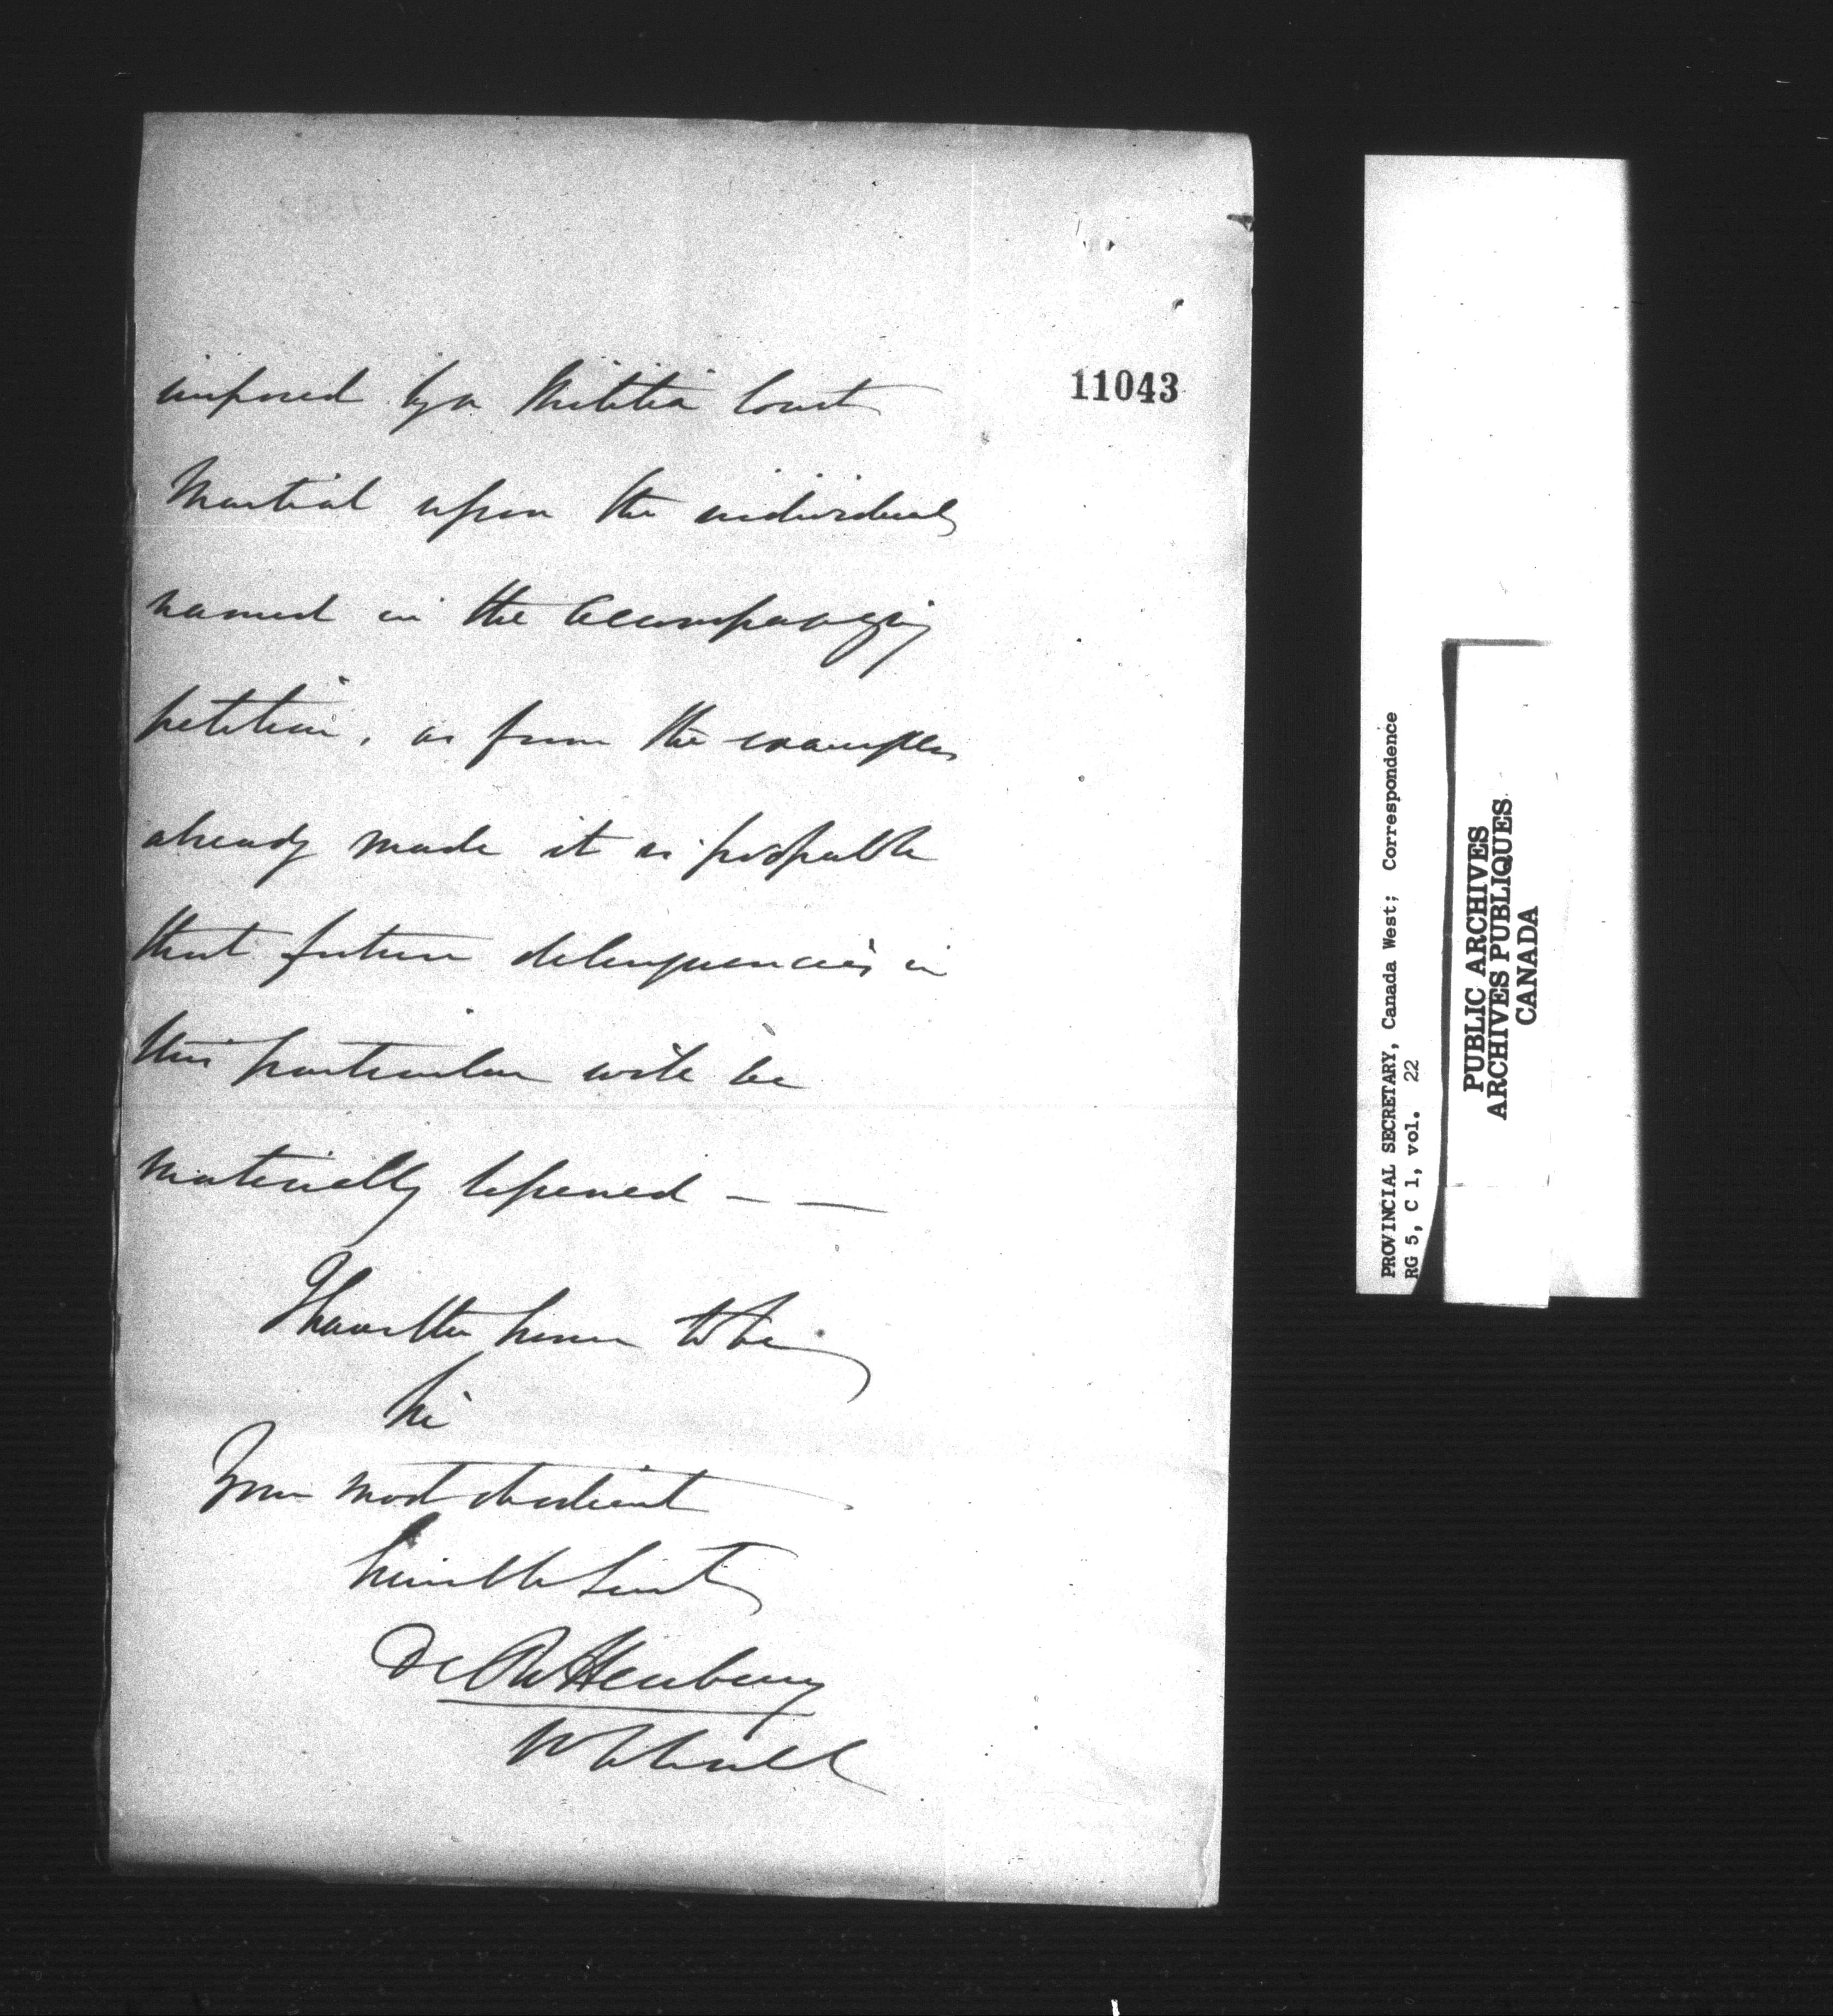 imposed by a Militia Court
11043
Martial upon the individuals
named in the accompanying
petition, as from the examples
already made it is probable
that future delinquencies in
this particular will be
materially lessened — —
I have the honor to be
Sir
Your most obedient
humble Servt
PROVINCIAL SECRETARY, Canada West; Correspondence
RG 5, C 1, vol. 22
PUBLIC ARCHIVES
ARCHIVES PUBLIQUES
CANADA